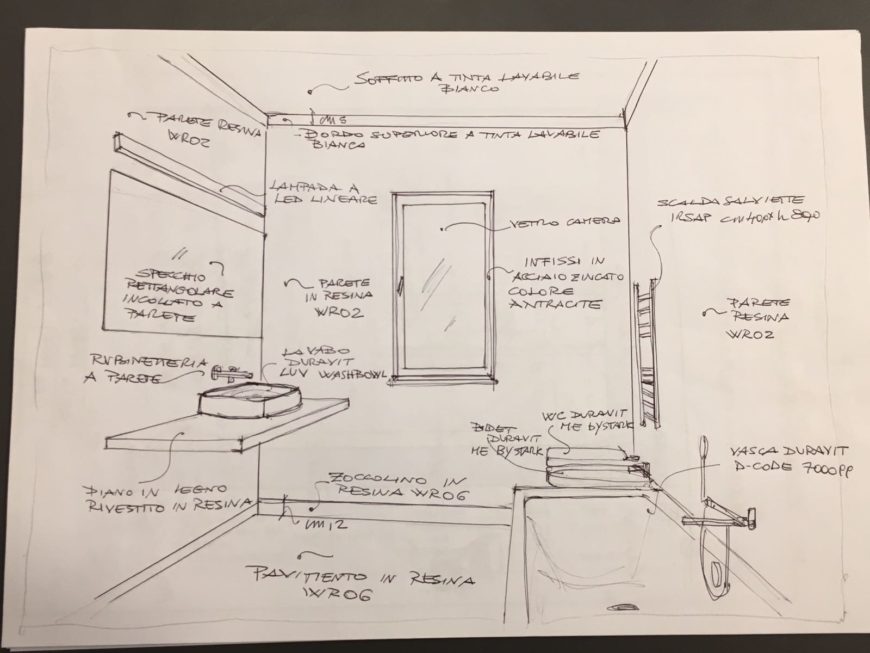 SOFFITTO A TINTA LAVABILE
BIANCO
PARETE RESINA
WR02
CM 5
BORDO SUPERIORE A TINTA LAVABILE
BIANCA
LAMPADA A
LED LINEARE
SCALDASALVIETTE
IRSAP
VETRO CAMERA
SPECCHIO
RETTANGOLARE
INCOLLATO A
PARETE
PARETE
IN RESINA
WR02
INFISSI IN
ACCIAIO ZINCATO
COLORE
ANTRACITE
PARETE
RESINA
WR02
RUBINETTERIA
A PARETE
LAVABO
DURAVIT
LUV WASHBOWL
BIDET
DURAVIT
ME BY STARK
WC DURAVIT
ME BY STARK
VASCA DURAVIT
D-CODE 7000PP
PIANO IN LEGNO
RIVESTITO IN RESINA
ZOCCOLINO IN
RESINA WR06
CM 12
PAVIMENTO IN RESINA
WR06